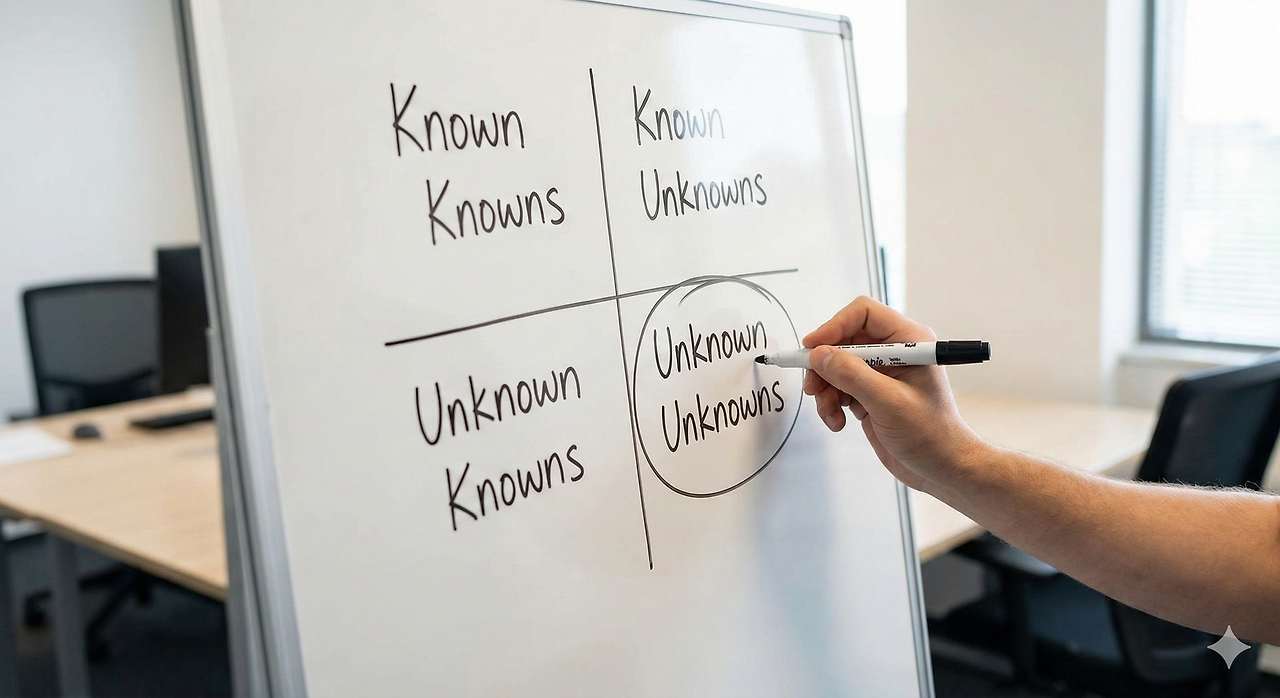 Known
Knowns
Known
Unknowns
Unknown
Knowns
Unknown
Unknowns